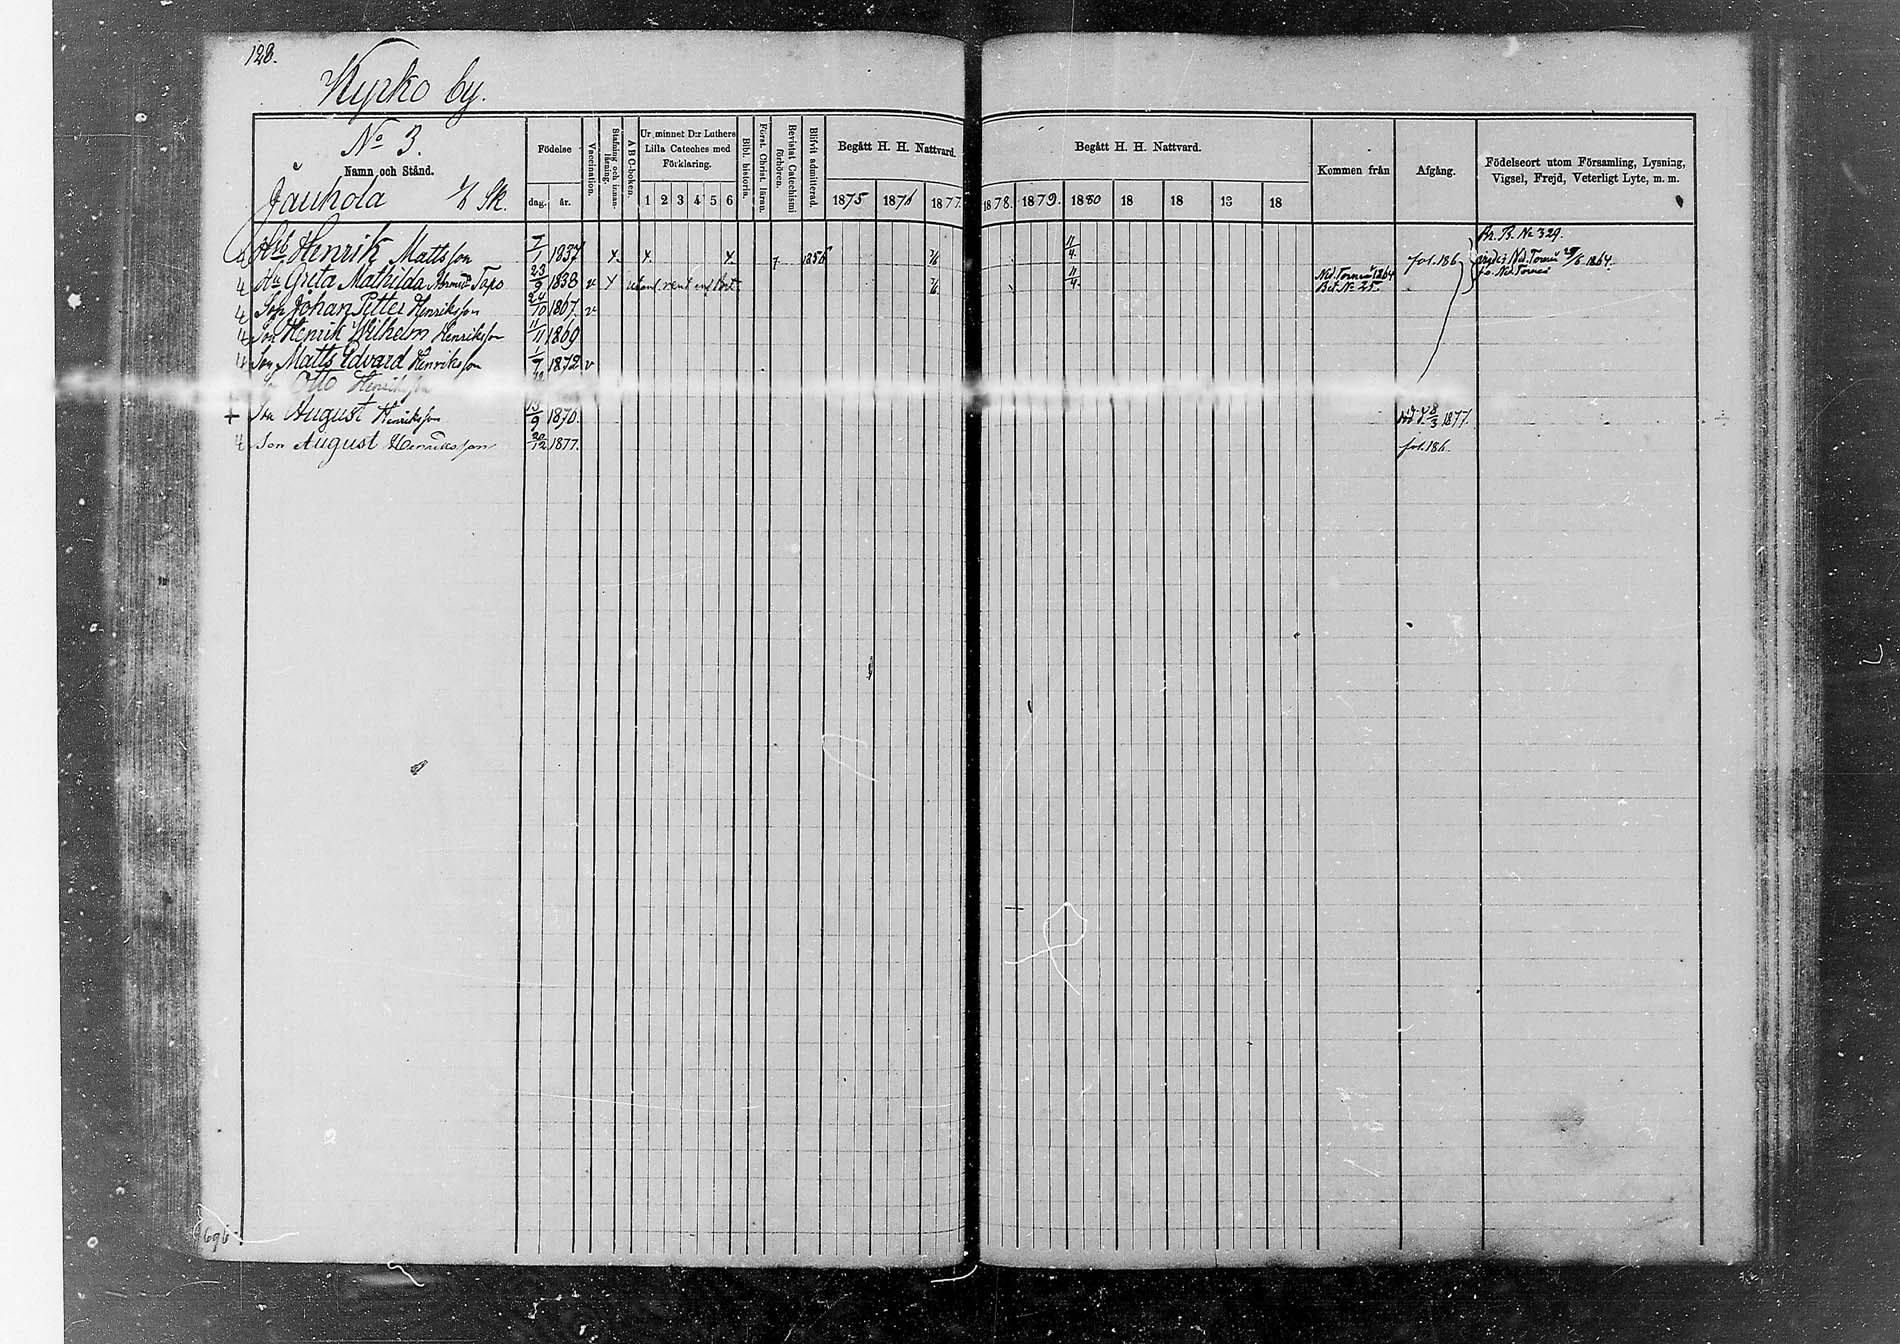 128.
Kyrko by.
No 3.
Namn och Stånd.
Jauhola
Sk.
Födelse
dag. år.
Vaccination.
Stafning och innanläsning.
A B C-boken.
Ur minnet D:r Luthers Lilla Cateches med Förklaring.
1 2 3 4 5 6
Bibl. historia.
Först. Christ. läran.
Bevistat Catechismi förhören.
Blifvit admitterad.
Begått H. H. Nattvard.
1875 1876 1877.
Begått H. H. Nattvard.
1878. 1879. 1880 18 18 18 18
Kommen från
Afgång.
Födelseort utom Församling, Lysning, Vigsel, Frejd, Veterligt Lyte, m. m.
Henrik Mattsson 7/1 1837 fol. 186 Nr. 329.
Greta Mathilda Tapo 23/9 1838 v Ned. Torneå 1864 Bet. No 25.
Son Johan Petter Henriksson 24/10 1867. v
Son Henrik Wilhelm Henriksson 11/11 1869
Son Matts Edvard Henriksson 1/7 1872 v
Otto Henriksson
+ Son August Henriksson 13/9 1876. död d. 8/3 1877.
4 Son August Henriksson 20/12 1877. fol. 186.
696